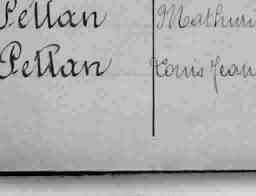 Pellan Mathuri
Pellan Louis Jean